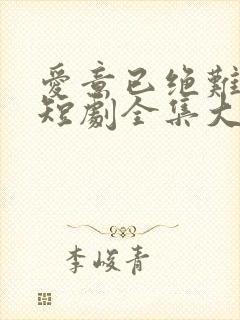 愛意已绝難
短劇全集大
李峻青